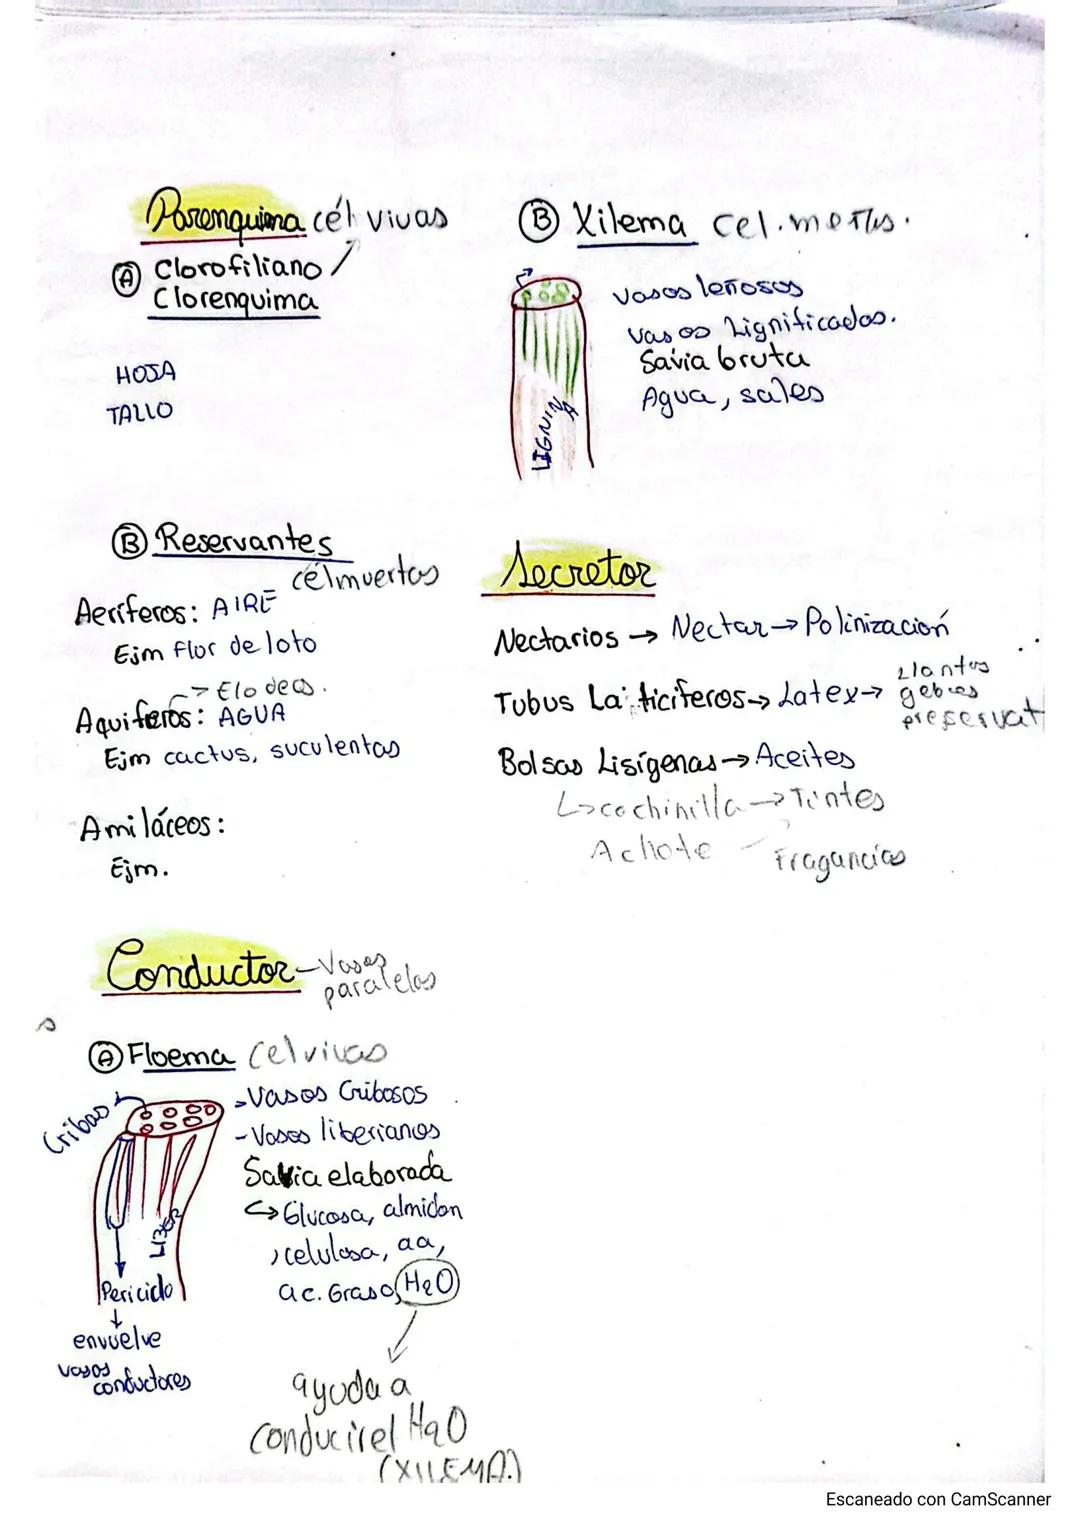 Parenquima cél vivas
Ⓐ Clorofiliano
Clorenquima
HOJA
TALLO
Ⓑ Reservantes
célmuertas
Aeríferos: AIRE
Ejm flor de loto
→ Elodeas.
Aquiferos: AGUA
Ejm cactus, suculentas
Amiláceos:
Ejm.
Conductor - Vasos
paralelas
Ⓐ Floema Cel vivas
Cribas
- Vasos Cribosos
- Vasos liberianos
Savia elaborada
↳ Glucosa, almidon
, celulosa, aa,
ac. Graso, H2O
LIBER
Periciclo
↓
envuelve
vasos
conductores
ayuda a
conducir el H2O
(XILEMA.)
Ⓑ Xilema cel. mertas.
vasos leñosos
vasos Lignificados.
Savia bruta
Agua, sales
LIGNINA
Secretor
Nectarios → Nectar → Polinización
Tubus Laiticiferos → Latex → Llantas
gebes
preservat
Bolsas Lisígenas → Aceites
↳ cochinilla → Tintes
Achote
Fragancias
Escaneado con CamScanner